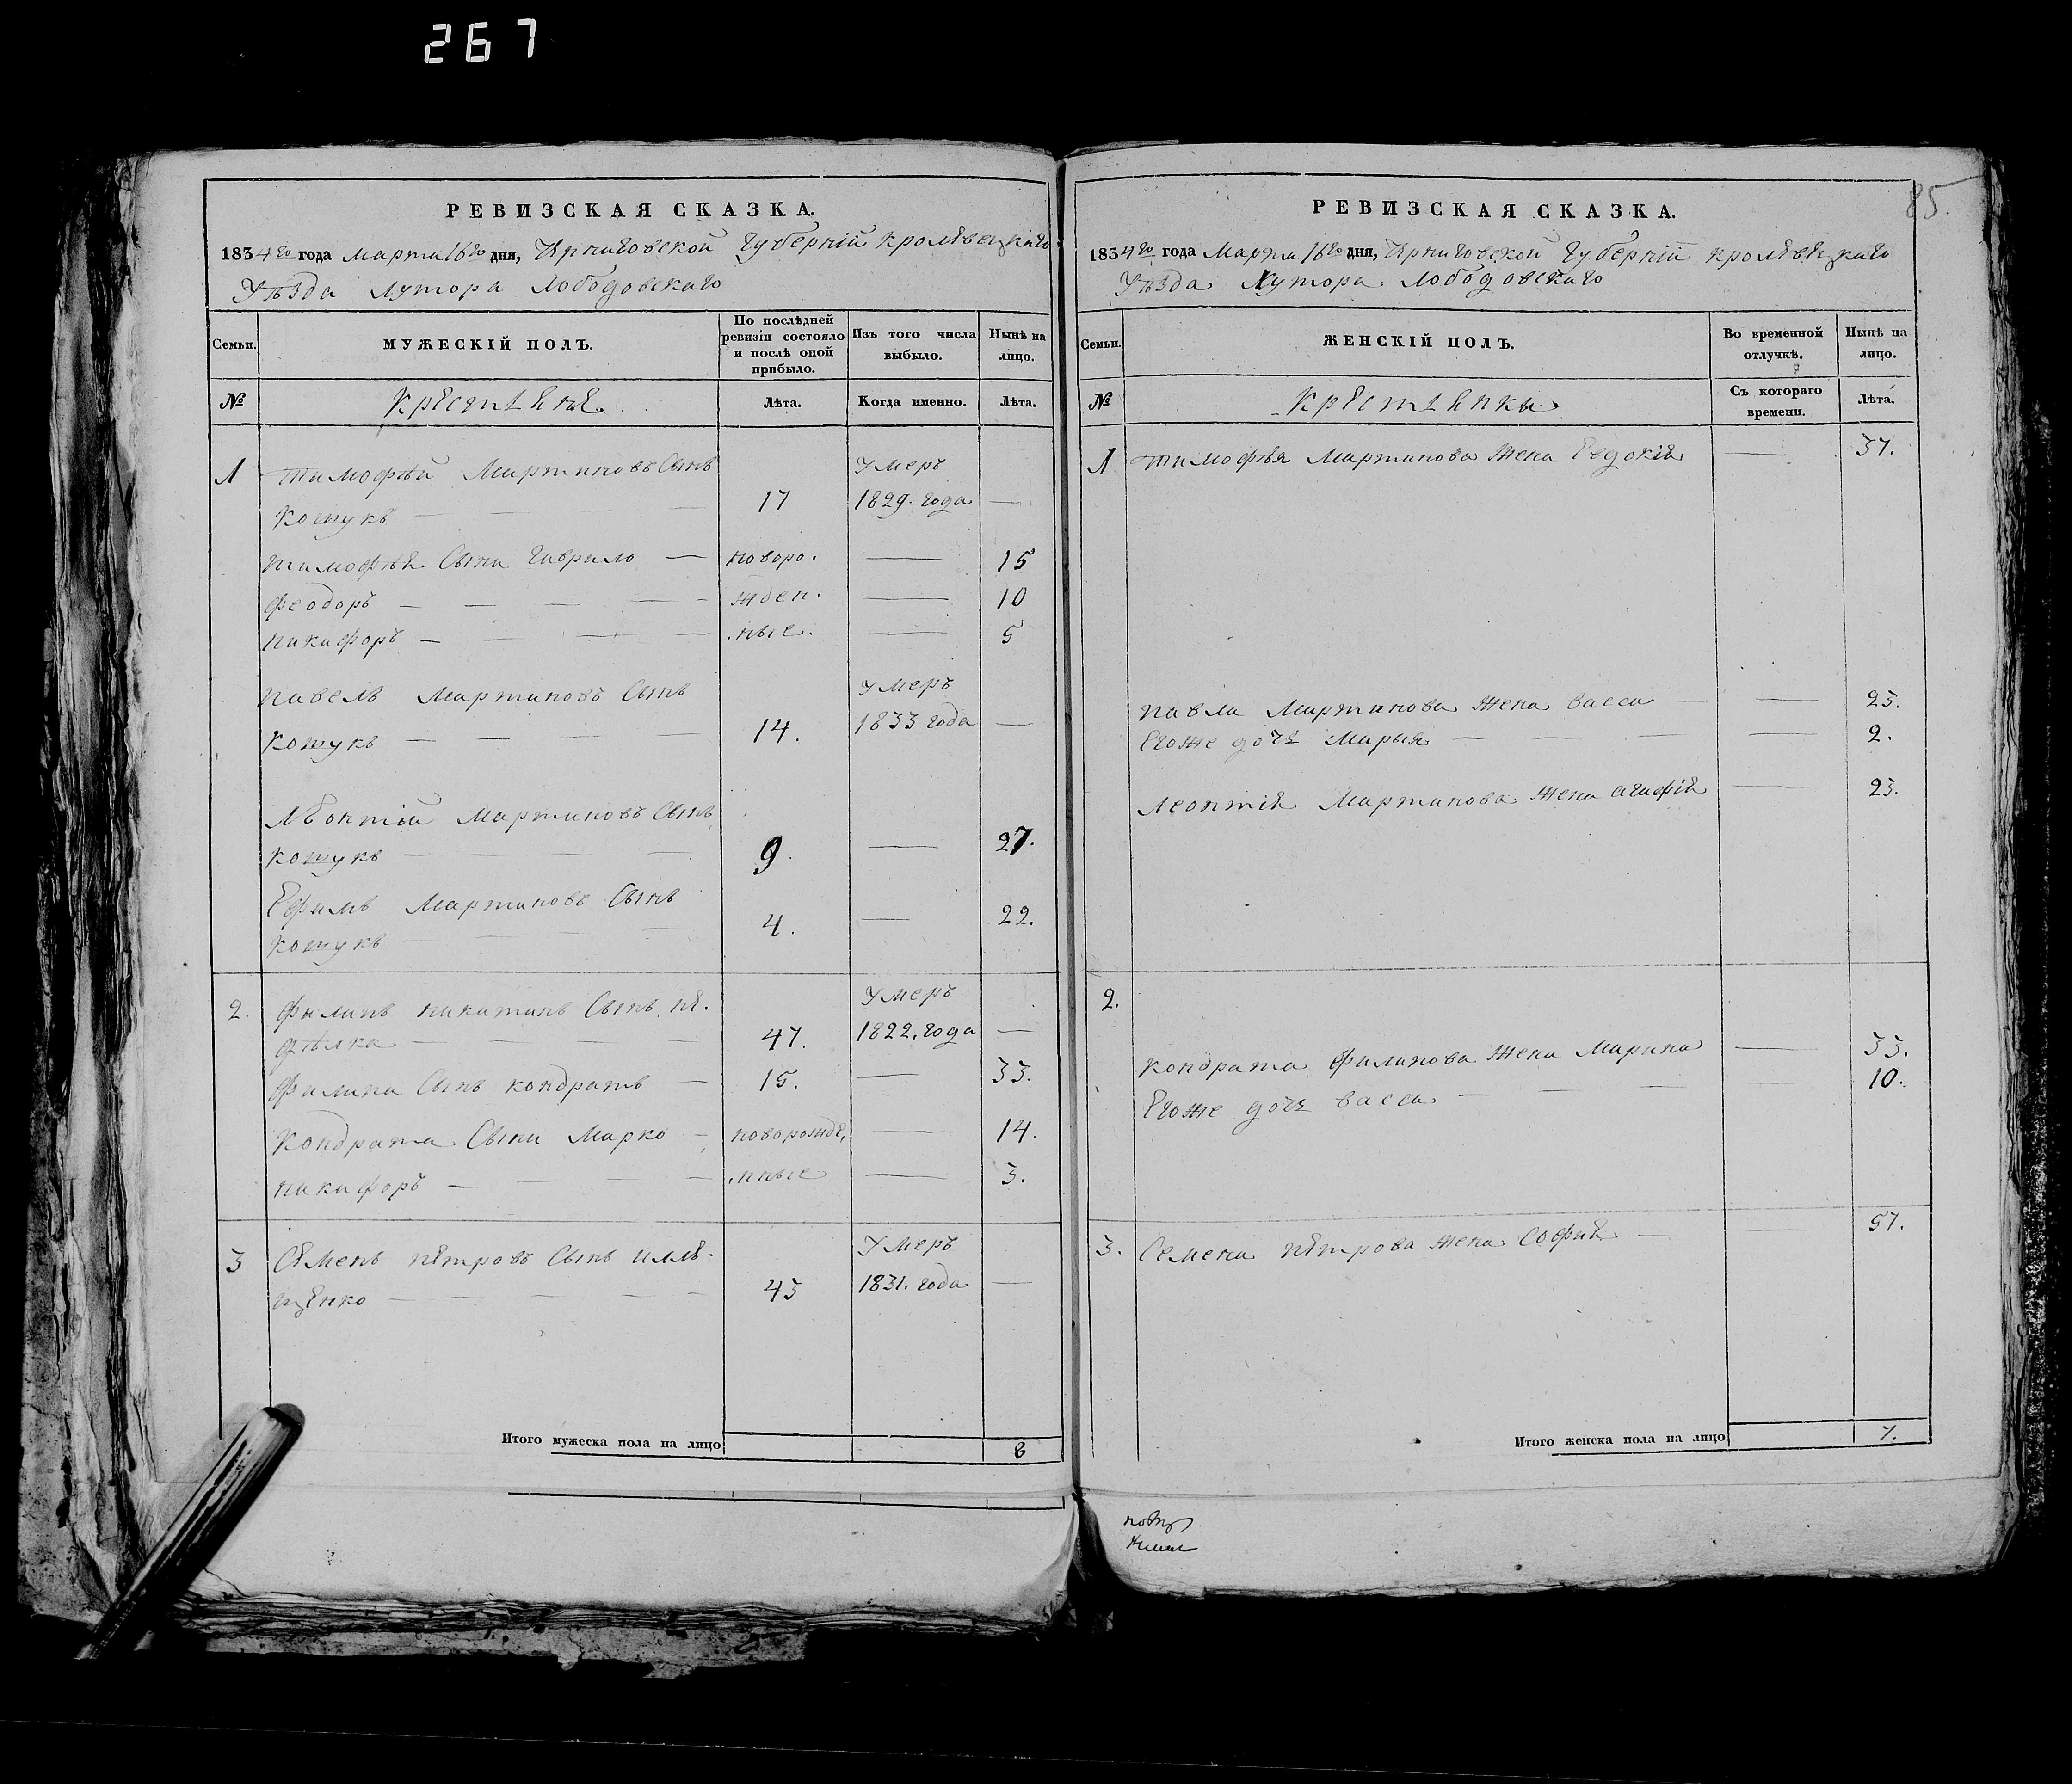 267
РЕВИЗСКАЯ СКАЗКА.
1834го года Марта 16го дня, Чрниговской Губерніи Кролѣвецкаго
Уѣзда Хутора Лободовскаго
Семьи.
МУЖЕСКІЙ ПОЛЪ.
По послѣдней ревизіи состояло и послѣ оной прибыло.
Изъ того числа выбыло.
Нынѣ на лицо.
№
Крестьяне
Лѣта.
Когда именно.
Лѣта.
1 Тимофѣй Мартиновъ Сынъ Умеръ
Кошукъ — 17 1829. года —
Тимофѣя Сыни Гаврило — новоро. — 15
Феодоръ — жден. — 10
Никифоръ — .ные. — 5
Павелъ Мартиновъ Сынъ Умеръ
Кошукъ — 14. 1833 года —
Леонтій Мартиновъ Сынъ
Кошукъ — 9. — 27.
Ефимъ Мартиновъ Сынъ
Кошукъ — 4. — 22.
2. Филипъ Никитинъ Сынъ, не. Умеръ
дѣлка — 47. 1822. года —
Филипа Сынъ Кондратъ — 15. — 33.
Кондрата Сыни Марко — новорожде, — 14.
Никифоръ — .нные — 3.
3 Семенъ Петровъ Сынъ Илле. Умеръ
щенко — 43 1831. года —
Итого мужеска пола на лицо 8
85.
РЕВИЗСКАЯ СКАЗКА.
1834го года Марта 16го дня, Чрниговской Губерніи Кролѣвецкаго
Уѣзда Хутора Лободовскаго
Семьи.
ЖЕНСКІЙ ПОЛЪ.
Во временной отлучкѣ.
Нынѣ на лицо.
№
Крестьянки
Съ котораго времени.
Лѣта.
1 Тимофѣя Мартинова Жена Евдокія — 37.
Павла Мартинова Жена Васса — 23.
Егоже дочь Марья — 2.
Леонтія Мартинова Жена Агафія — 23.
2.
Кондрата Филипова Жена Марина — 33.
Егоже дочь Васса — 10.
3. Семена Петрова Жена Софія — 57.
Итого женска пола на лицо 7.